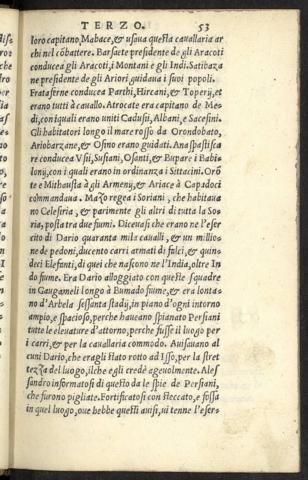 TERZO. 53
loro capitano, Mabace, & usaua questa cauallaria ar
chi nel cõbattere. Barsaete presidente de gli Aracoti
conducea gli Aracoti, i Montani e gli Indi. Satibaza
ne presidente de gli Ariori, guidaua i suoi popoli.
Frataferne conducea Parthi, Hircani, & Toperij, et
erano tutti à cauallo. Atrocate era capitano de Me-
di, con iquali erano uniti Cadusii, Albani, e Sacesini.
Gli habitatori longo il mare rosso da Orondobato,
Ariobarzane, & Osfino erano guidati. Anaspasti ca
re conducea Vsii, Susiani, Osanti, & Eupare i Babi-
lonij, con i quali erano in ordinanza i Sittacini. Orõ
te e Mithausta à gli Armenij, & Ariace à Capadoci
commandana. Mazo regea i Soriani, che habitaua
no Celesiria, & parimente gli altri di tutta la So-
ria, posta tra due fiumi. Diceuasi che erano ne l'eser
cito di Dario quaranta mila caualli, & un millio-
ne de pedoni, ducento carri armati di falci, & quin-
deci Elefanti, di quei che nascono ne l'India, oltre In
do fiume. Era Dario alloggiato con queste squadre
in Gaugameli longo à Bumado fiume, & era lonta-
no d'Arbela sessanta stadij, in piano d'ogni intorno
ampio, e spacioso, perche haueano spianato Persiani
tutte le eleuature d'attorno, perche fusse il luogo per
i carri, & per la cauallaria commodo. Auisauano al
cuni Dario, che era gli stato rotto ad Isso, per la stret
tezza del luogo, ilche egli crede ageuolmente. Ales
sandro informatosi di questo da le spie de Persiani,
che furono pigliate. Fortificatosi con steccato, e fossa
in quel luogo, oue hebbe questi auisi, ui tenne l'eser-